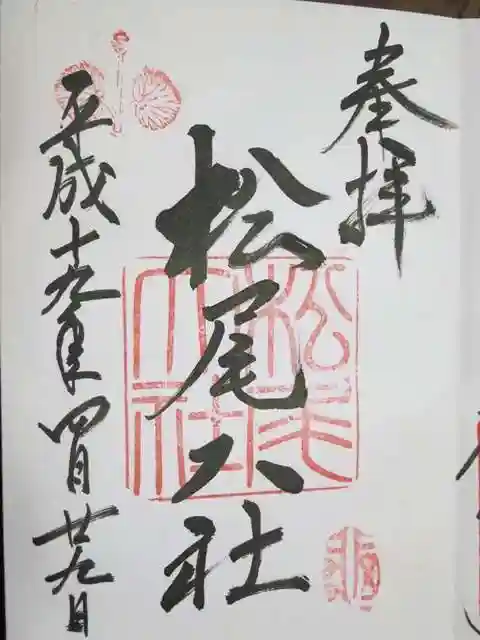 奉拝
松尾大社
松尾大社
平成十九年四月廿九日